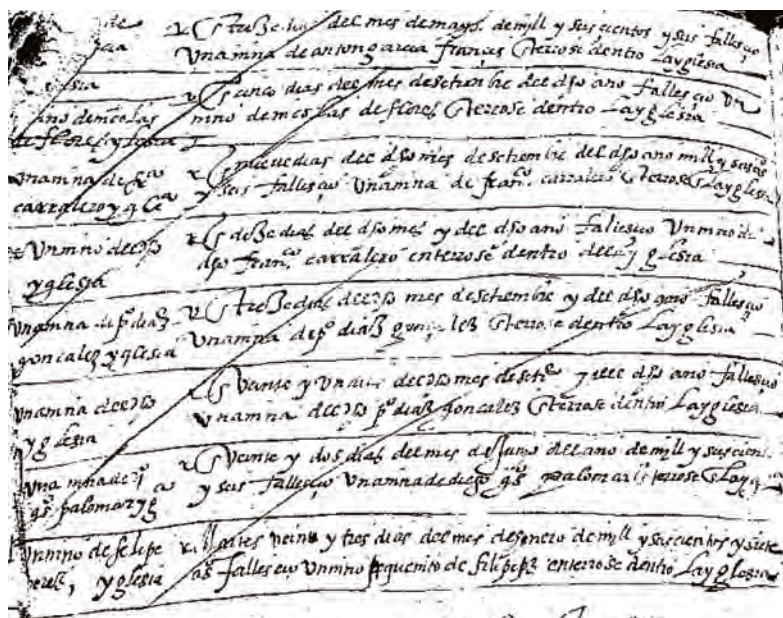 de
cia
treze dias del mes de mayo de mill y seis cientos y seis fallesçio
Una niña de anton garcia françes Enterrose dentro La yglesia
glesia
cinco dias del mes de setiembre del dho año fallesçio Un
niño de nicolas de flores Enterrose dentro La yglesia
niño de nicolas
de flores yglesia
Una niña de frco
carralero yglesia
nueve dias del dho mes de setiembre del dho año mill y seiscios
y seis fallesçio Una niña de franco carralero Enterrose La yglesia
Un niño del dho
yglesia
doze dias del dho mes y del dho año fallesçio Un niño de
dho franco carralero enterrose dentro de la yglesia
Una niña de po diaz
gonçalez yglesia
treze dias del dho mes de setiembre y del dho año fallesçio
Una niña de po diaz gonçalez Enterrose dentro La yglesia
Una niña del dho
yglesia
Veinte y Un dias del dho mes de sete y del dho año fallesçio
Una niña del dho po diaz gonçalez Enterrose dentro La yglesia
Una niña de
palomar yg
Veinte y dos dias del mes de Junio del año de mill y seiscient
y seis fallesçio Una niña de diego gs palomar Enterrose La yg
Un niño de felipe
perez, yglesia
Martes veinte y tres dias del mes de henero de mill y seiscientos y siete
as fallesçio Un niño pequenito de filipe pz enterrose dentro La yglesia